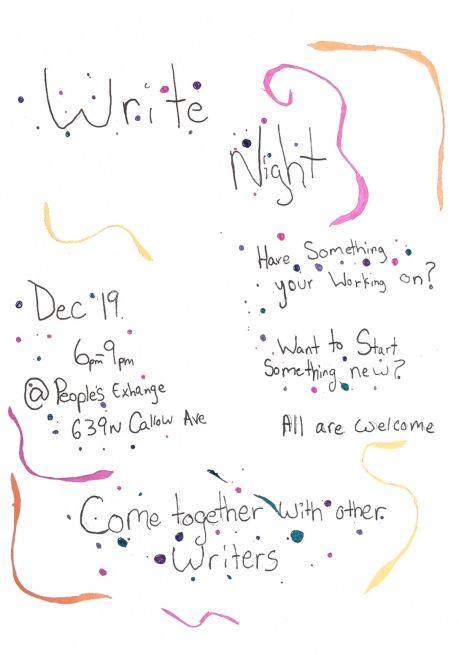 Write
Night
Have Something
your Working on?
Dec 19
6pm-9pm
@ People's Exhange
639N Callow Ave
Want to Start
Something new?
All are welcome
Come together with other
Writers